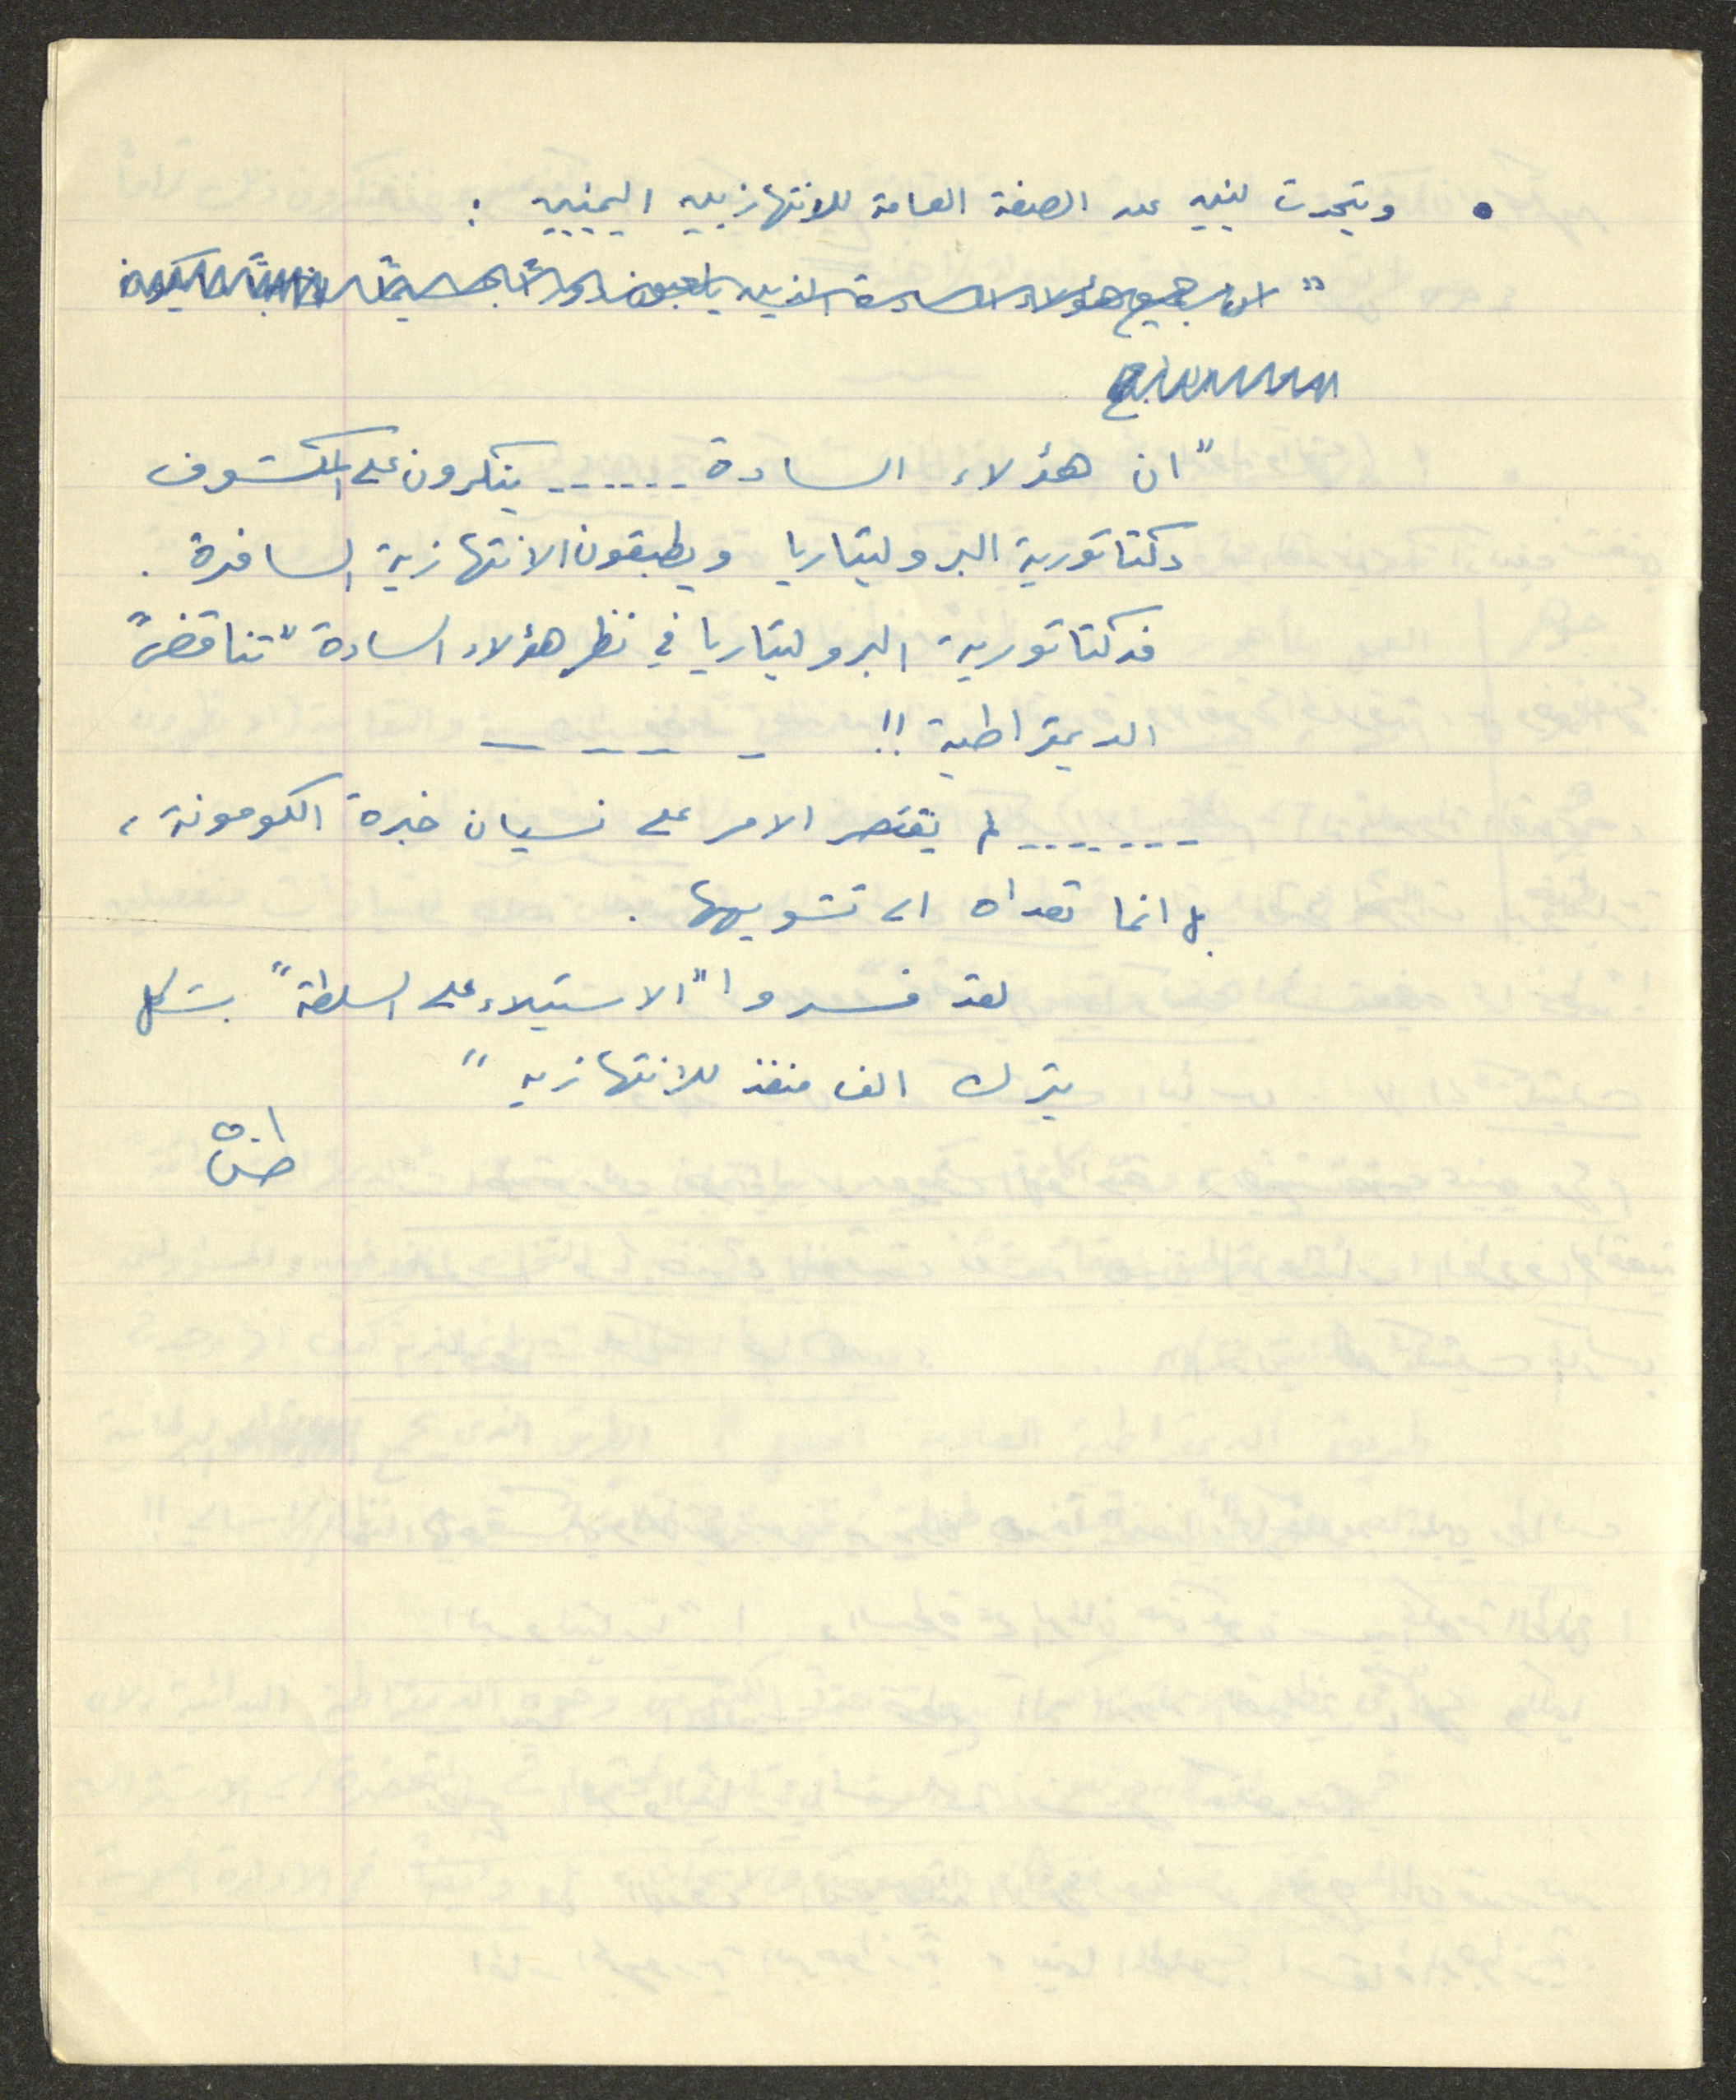 • ويتحدث لينين عن الصفة العامة للانتهازيين اليمنيين :
" ان جميع هؤلاء السادة الذين يلعبون دوراً
"ان هؤلاء السادة ...... ينكرون على المكشوف
دكتاتورية البروليتاريا ويطبقون الانتهازية السافرة .
فدكتاتورية البروليتاريا في نظر هؤلاء السادة "تناقض"
الديمقراطية !! - - - - -
....... لم يقتصر الامر على نسيان خبرة الكومونة ،
بل انما تعداه الى تشويهها .
لقد فسروا "الاستيلاء على السلطة" بشكل
يترك الف منفذ للانتهازية "